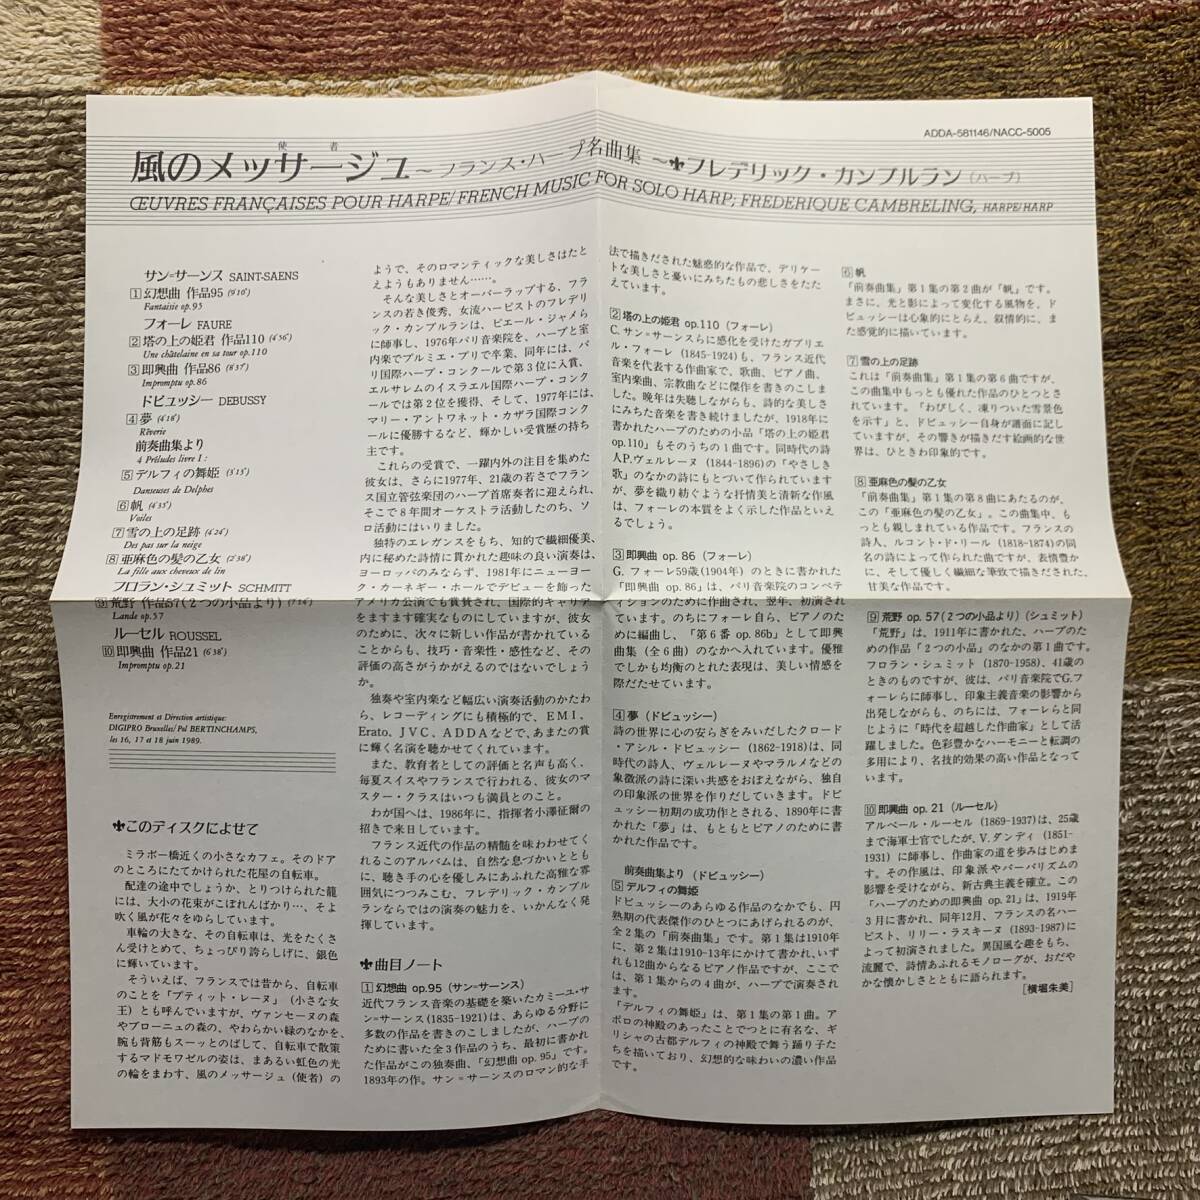 ADDA-581146/NACC-5005
使者
風のメッサージュ～フランス・ハープ名曲集～⚜フレデリック・カンブルラン(ハープ)
ŒUVRES FRANÇAISES POUR HARPE/FRENCH MUSIC FOR SOLO HARP; FREDERIQUE CAMBRELING, HARPE/HARP
サン=サーンス SAINT-SAENS
1 幻想曲 作品95 (9'10")
Fantaisie op.95
フォーレ FAURE
2 塔の上の姫君 作品110 (4'56")
Une châtelaine en sa tour op.110
3 即興曲 作品86 (8'37")
Impromptu op.86
ドビュッシー DEBUSSY
4 夢 (4'16")
Rêverie
前奏曲集より
4 Préludes livre I :
5 デルフィの舞姫 (3'13")
Danseuses de Delphes
6 帆 (4'35")
Voiles
7 雪の上の足跡 (4'24")
Des pas sur la neige
8 亜麻色の髪の乙女 (2'38")
La fille aux cheveux de lin
フロラン・シュミット SCHMITT
9 荒野 作品57(2つの小品より)
Lande op.57
ルーセル ROUSSEL
10 即興曲 作品21 (6'38")
Impromptu op.21
Enregistrement et Direction artistique:
DIGIPRO Bruxelles/Pol BERTINCHAMPS,
les 16, 17 et 18 juin 1989.
⚜このディスクによせて
ミラボー橋近くの小さなカフェ。そのドア
のところにたてかけられた花屋の自転車。
配達の途中でしょうか、とりつけられた籠
には、大小の花束がこぼれんばかり…、そよ
吹く風が花々をゆらしています。
車輪の大きな、その自転車は、光をたくさ
ん受けとめて、ちょっぴり誇らしげに、銀色
に輝いています。
そういえば、フランスでは昔から、自転車
のことを「プティット・レーヌ」(小さな女
王)とも呼んでいますが、ヴァンセーヌの森
やブローニュの森の、やわらかい緑のなかを、
腕も背筋もスーッとのばして、自転車で散策
するマドモワゼルの姿は、まあるい虹色の光
の輪をまわす、風のメッサージュ(使者)の
ようで、そのロマンティックな美しさはたと
えようもありません……。
そんな美しさとオーバーラップする、フラ
ンスの若き俊秀、女流ハーピストのフレデリ
ック・カンブルランは、ピエール・ジャメら
に師事し、1976年パリ音楽院を、ハープと室
内楽でプルミエ・プリで卒業、同年には、パ
リ国際ハープ・コンクールで第3位に入賞、
エルサレムのイスラエル国際ハープ・コンク
ールでは第2位を獲得、そして、1977年には、
マリー・アントワネット・カザラ国際コンク
ールに優勝するなど、輝かしい受賞歴の持ち
主です。
これらの受賞で、一躍内外の注目を集めた
彼女は、さらに1977年、21歳の若さでフラン
ス国立管弦楽団のハープ首席奏者に迎えられ、
そこで8年間オーケストラ活動したのち、ソ
ロ活動にはいりました。
独特のエレガンスをもち、知的で繊細優美、
内に秘めた詩情に貫かれた趣味の良い演奏は、
ヨーロッパのみならず、1981年にニューヨー
ク・カーネギー・ホールでデビューを飾った
アメリカ公演でも賞賛され、国際的キャリア
をますます確実なものにしていますが、彼女
のために、次々に新しい作品が書かれている
ことからも、技巧・音楽性・感性など、その
評価の高さがうかがえるのではないでしょう
か。
独奏や室内楽など幅広い演奏活動のかたわ
ら、レコーディングにも積極的で、EMI、
Erato、JVC、ADDAなどで、あまたの賞
に輝く名演を聴かせてくれています。
また、教育者としての評価と名声も高く、
毎夏スイスやフランスで行われる、彼女のマ
スター・クラスはいつも満員とのこと。
わが国へは、1986年に、指揮者小澤征爾の
招きで来日しています。
フランス近代の作品の精髄を味わわせてく
れるこのアルバムは、自然な息づかいととも
に、聴き手の心を優しみにあふれた高雅な雰
囲気につつみこむ、フレデリック・カンブル
ランならではの演奏の魅力を、いかんなく発
揮しています。
⚜曲目ノート
1 幻想曲 op.95 (サン=サーンス)
近代フランス音楽の基礎を築いたカミーユ・サ
ン=サーンス(1835-1921)は、あらゆる分野に
多数の作品を書きのこしましたが、ハープの
ために書いた全3作品のうち、最初に書かれ
た作品がこの独奏曲、「幻想曲 op. 95」です。
1893年の作。サン=サーンスのロマン的な手
法で描きだされた魅惑的な作品で、デリケー
トな美しさと憂いにみちたもの悲しさをたた
えています。
2 塔の上の姫君 op.110 (フォーレ)
C. サン=サーンスらに感化を受けたガブリエ
ル・フォーレ(1845-1924)も、フランス近代
音楽を代表する作曲家で、歌曲、ピアノ曲、
室内楽曲、宗教曲などに傑作を書きのこしま
した。晩年は失聴しながらも、詩的な美しさ
にみちた音楽を書き続けましたが、1918年に
書かれたハープのための小品「塔の上の姫君
op.110」もそのうちの1曲です。同時代の詩
人P.ヴェルレーヌ(1844-1896)の「やさしき
歌」のなかの詩にもとづいて作られています
が、夢を織り紡ぐような抒情美と清新な作風
は、フォーレの本質をよく示した作品といえ
るでしょう。
3 即興曲 op. 86 (フォーレ)
G. フォーレ59歳(1904年)のときに書かれた
「即興曲 op.86」は、パリ音楽院のコンペテ
ィションのために作曲され、翌年、初演され
ています。のちにフォーレ自ら、ピアノのた
めに編曲し、「第6番 op. 86b」として即興
曲集(全6曲)のなかへ入れています。優雅
でしかも均衡のとれた表現は、美しい情感を
際だたせています。
4 夢 (ドビュッシー)
詩の世界に心の安らぎをみいだしたクロード
・アシル・ドビュッシー(1862-1918)は、同
時代の詩人、ヴェルレーヌやマラルメなどの
象徴派の詩に深い共感をおぼえながら、独自
の印象派の世界を作りだしていきます。ドビ
ュッシー初期の成功作とされる、1890年に書
かれた「夢」は、もともとピアノのために書
かれた作品です。
前奏曲集より (ドビュッシー)
5 デルフィの舞姫
ドビュッシーのあらゆる作品のなかでも、円
熟期の代表傑作のひとつにあげられるのが、
全2集の「前奏曲集」です。第1集は1910年
に、第2集は1910-13年にかけて書かれ、いず
れも12曲からなるピアノ作品ですが、ここで
は、第1集からの4曲が、ハープで演奏され
ます。
「デルフィの舞姫」は、第1集の第1曲。ア
ポロの神殿のあったことでつとに有名な、ギ
リシャの古都デルフィの神殿で舞う踊り子た
ちを描いており、幻想的な味わいの濃い作品
です。
6 帆
「前奏曲集」第1集の第2曲が「帆」です。
まさに、光と影によって変化する風物を、ド
ビュッシーは心象的にとらえ、叙情的に、ま
た感覚的に描いています。
7 雪の上の足跡
これは「前奏曲集」第1集の第6曲ですが、
この曲集中もっとも優れた作品のひとつとさ
れています。「わびしく、凍りついた雪景色
を示す」と、ドビュッシー自身が譜面に記し
ていますが、その響きが描きだす絵画的な世
界は、ひときわ印象的です。
8 亜麻色の髪の乙女
「前奏曲集」第1集の第8曲にあたるのが、
この「亜麻色の髪の乙女」。この曲集中、も
っとも親しまれている作品です。フランスの
詩人、ルコント・ド・リール(1818-1874)の同
名の詩によって作られた曲ですが、表情豊か
に、そして優しく繊細な筆致で描きだされた、
甘美な作品です。
9 荒野 op. 57(2つの小品より)(シュミット)
「荒野」は、1911年に書かれた、ハープのた
めの作品「2つの小品」のなかの第1曲です。
フロラン・シュミット(1870-1958)、41歳の
ときのものですが、彼は、パリ音楽院でG.フ
ォーレらに師事し、印象主義音楽の影響から
出発しながらも、のちには、フォーレらと同
じように「時代を超越した作曲家」として活
躍しました。色彩豊かなハーモニーと転調の
多用により、名技的効果の高い作品となって
います。
10 即興曲 op. 21 (ルーセル)
アルベール・ルーセル(1869-1937)は、25歳
まで海軍士官でしたが、V.ダンディ(1851-
1931)に師事し、作曲家の道を歩みはじめま
す。その作風は、印象派やバーバリズムの
影響を受けながら、新古典主義を確立。この
「ハープのための即興曲 op. 21」は、1919年
3月に書かれ、同年12月、フランスの名ハー
ピスト、リリー・ラスキーヌ(1893-1987)に
よって初演されました。異国風な趣をもち、
流麗で、詩情あふれるモノローグが、おだや
かな懐かしさとともに語られます。
[横堀朱美]